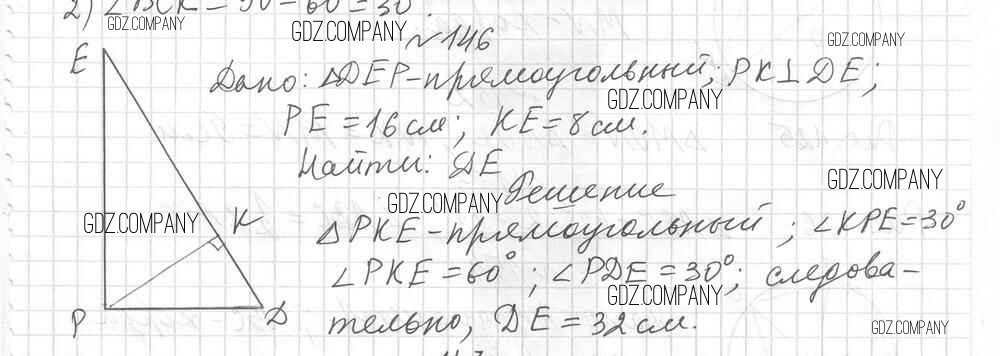 2) ∠BCK = 90 - 60 = 30°.
GDZ.COMPANY
GDZ.COMPANY
GDZ.COMPANY
~146
E
Дано: △DEP-прямоугольный; PK⊥DE;
GDZ.COMPANY
PE = 16 см; KE = 8 см.
Найти: DE
GDZ.COMPANY
GDZ.COMPANY
Решение
GDZ.COMPANY
K
△PKE-прямоугольный; ∠KPE = 30°
∠PKE = 60°; ∠PDE = 30°; следова-
GDZ.COMPANY
P
D
тельно, DE = 32 см.
GDZ.COMPANY